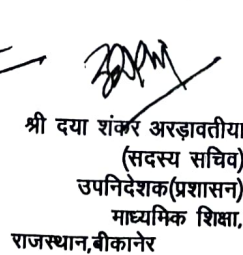 श्री दया शंकर अरड़ावतीया
(सदस्य सचिव)
उपनिदेशक(प्रशासन)
माध्यमिक शिक्षा,
राजस्थान,बीकानेर